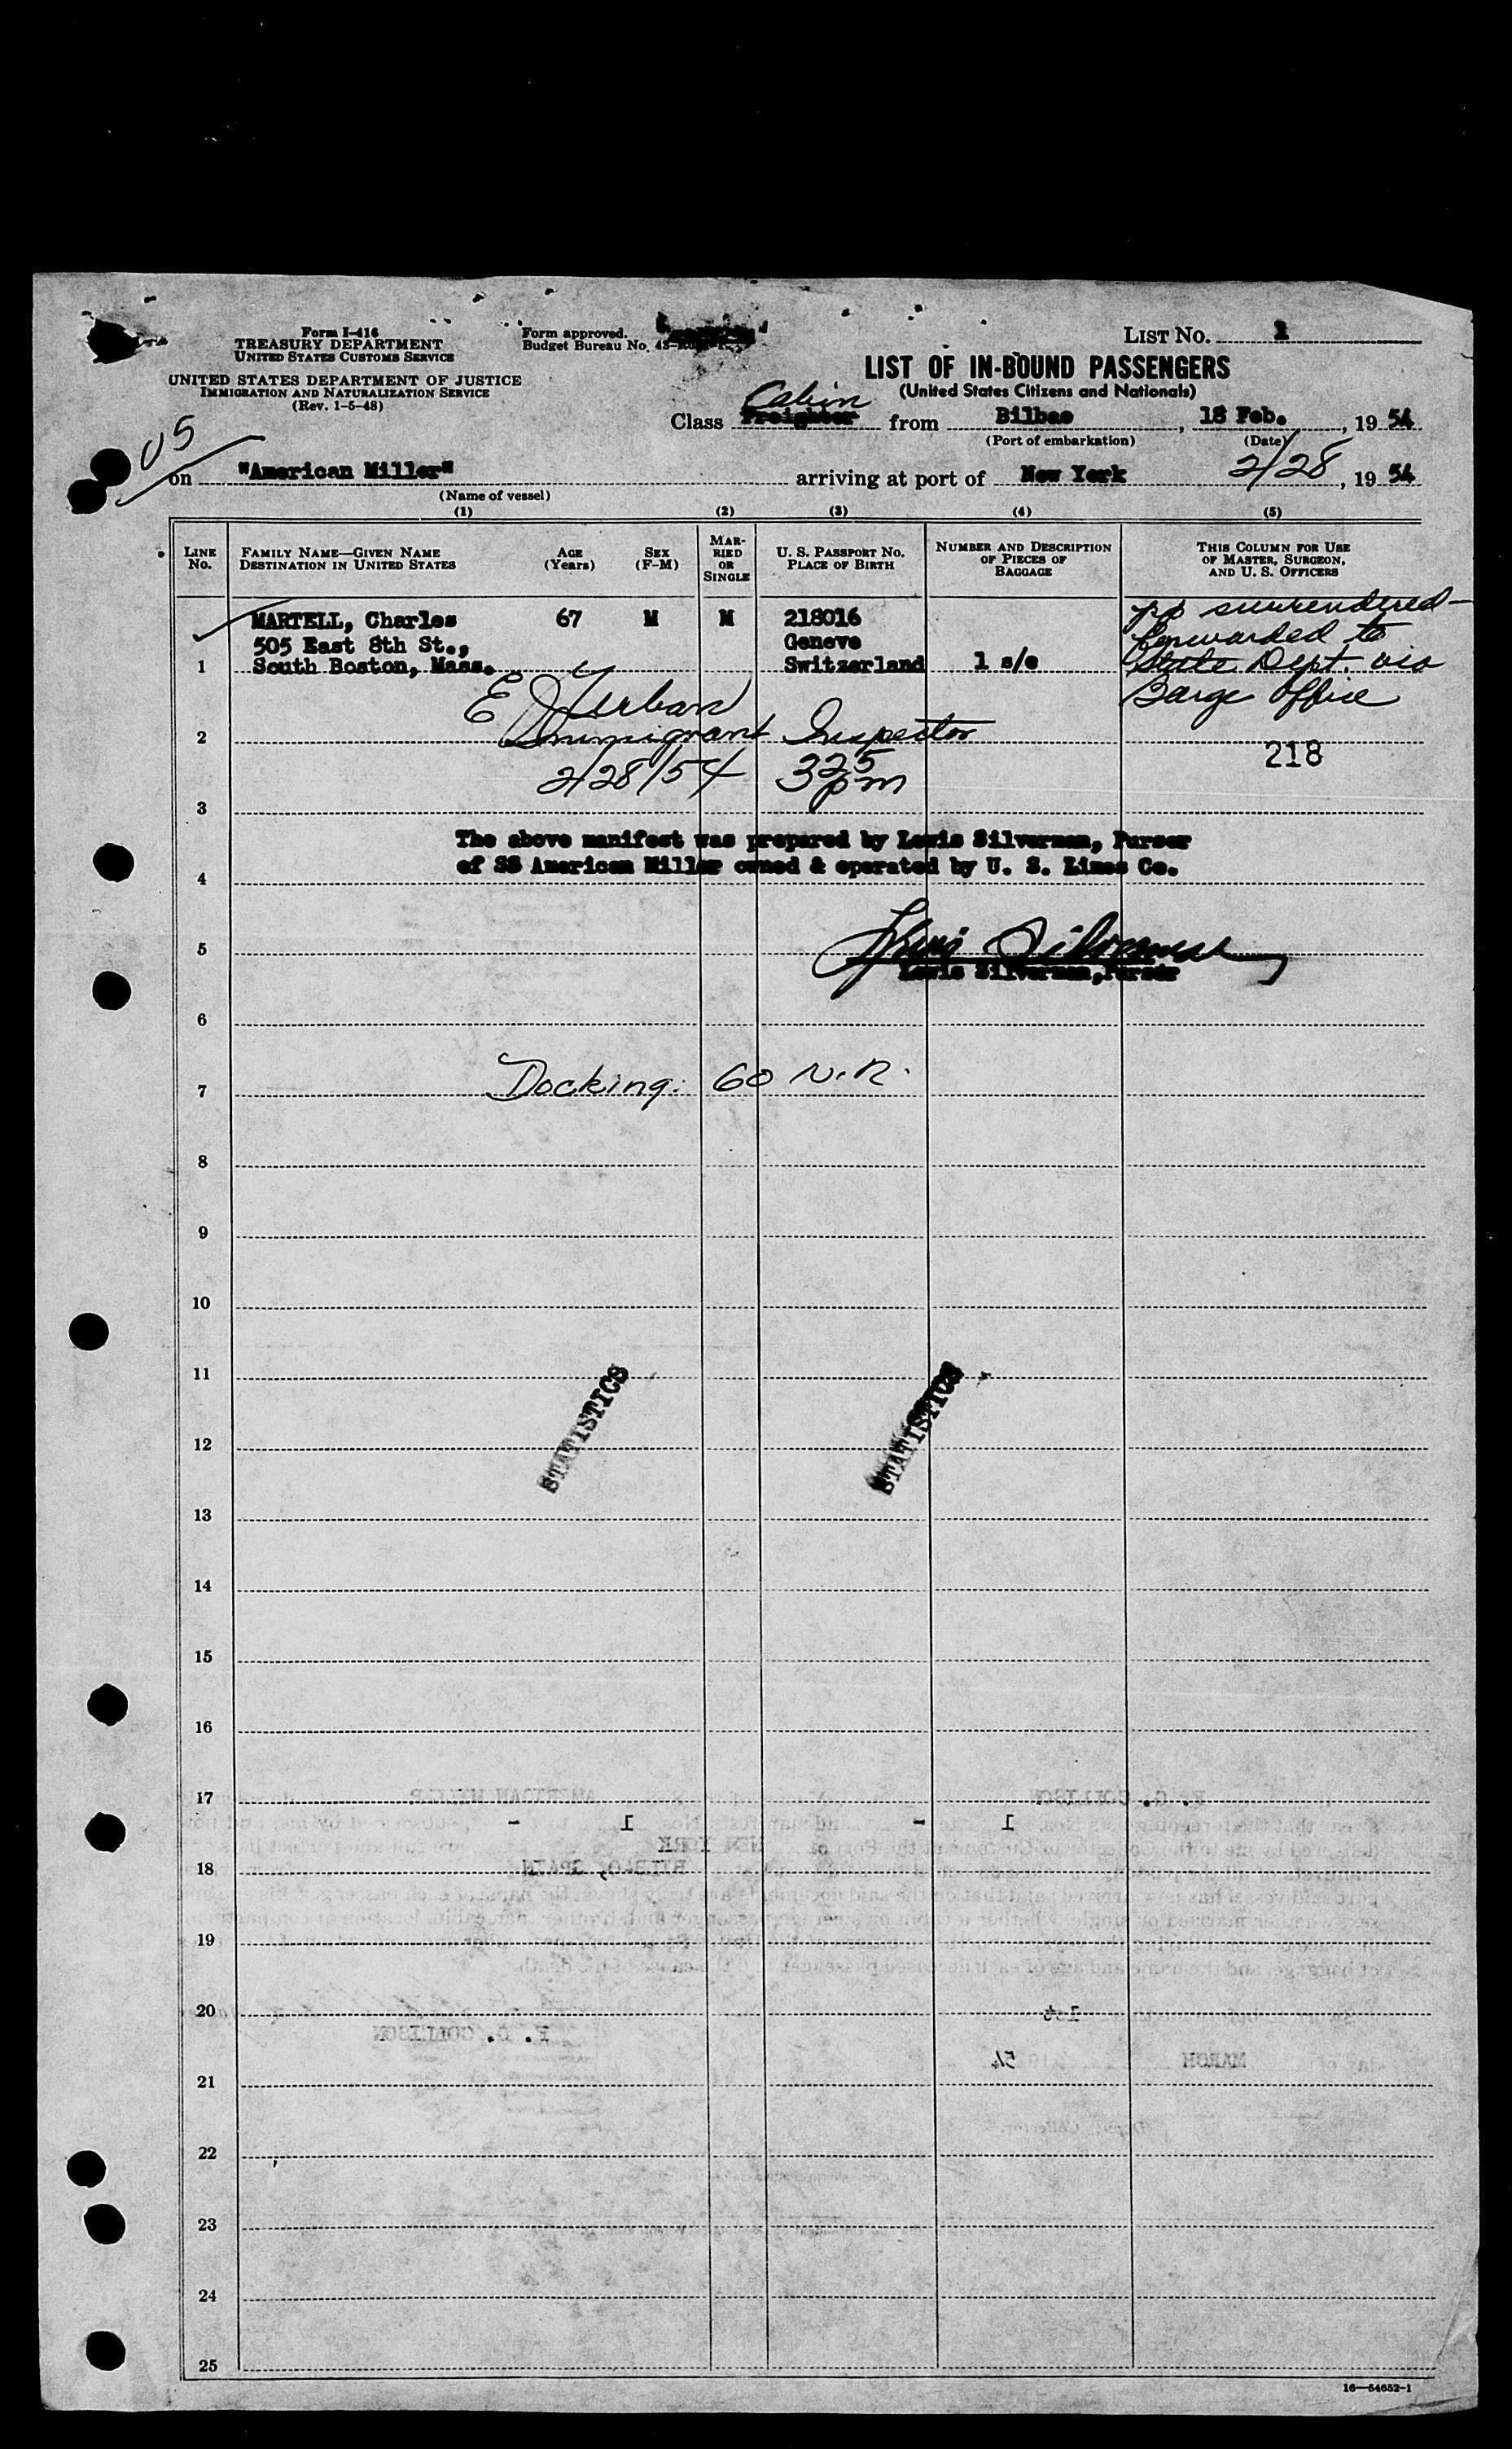 Form I-416
TREASURY DEPARTMENT
UNITED STATES CUSTOMS SERVICE
UNITED STATES DEPARTMENT OF JUSTICE
IMMIGRATION AND NATURALIZATION SERVICE
(Rev. 1-5-48)
Form approved.
Budget Bureau No. 43-
LIST No. 1
LIST OF IN-BOUND PASSENGERS
(United States Citizens and Nationals)
Cabin
Class Freighter from Bilbao, 18 Feb., 19 54
(Port of embarkation) (Date)
05
on "American Miller" arriving at port of New York 2/28, 19 54
(Name of vessel)
(1) (2) (3) (4) (5)
LINE No. FAMILY NAME—GIVEN NAME DESTINATION IN UNITED STATES AGE (Years) SEX (F-M) MARRIED OR SINGLE U. S. PASSPORT No. PLACE OF BIRTH NUMBER AND DESCRIPTION OF PIECES OF BAGGAGE THIS COLUMN FOR USE OF MASTER, SURGEON, AND U. S. OFFICERS
MARTELL, Charles 67 M M 218016 pp surrendered-
505 East 8th St., Geneve forwarded to
1 South Boston, Mass. Switzerland 1 s/c State Dept. via
Barge Office
E J Urban
2 Immigrant Inspector
218
2/28/54 325 pm
3
The above manifest was prepared by Lewis Silverman, Purser
of SS American Miller owned & operated by U. S. Lines Co.
4
5 Lewis Silverman
Lewis Silverman, Purser
6
7 Docking: 60 N.R.
8
9
10
11
STATISTICS STATISTICS
12
13
14
15
16
17
AMERICAN MILLER
1 - 1 -
NEW YORK
18
BILBAO, SPAIN
19
20
1st
F. C. COLLISON
MARCH 54
21
22
23
24
25
16—54652-1